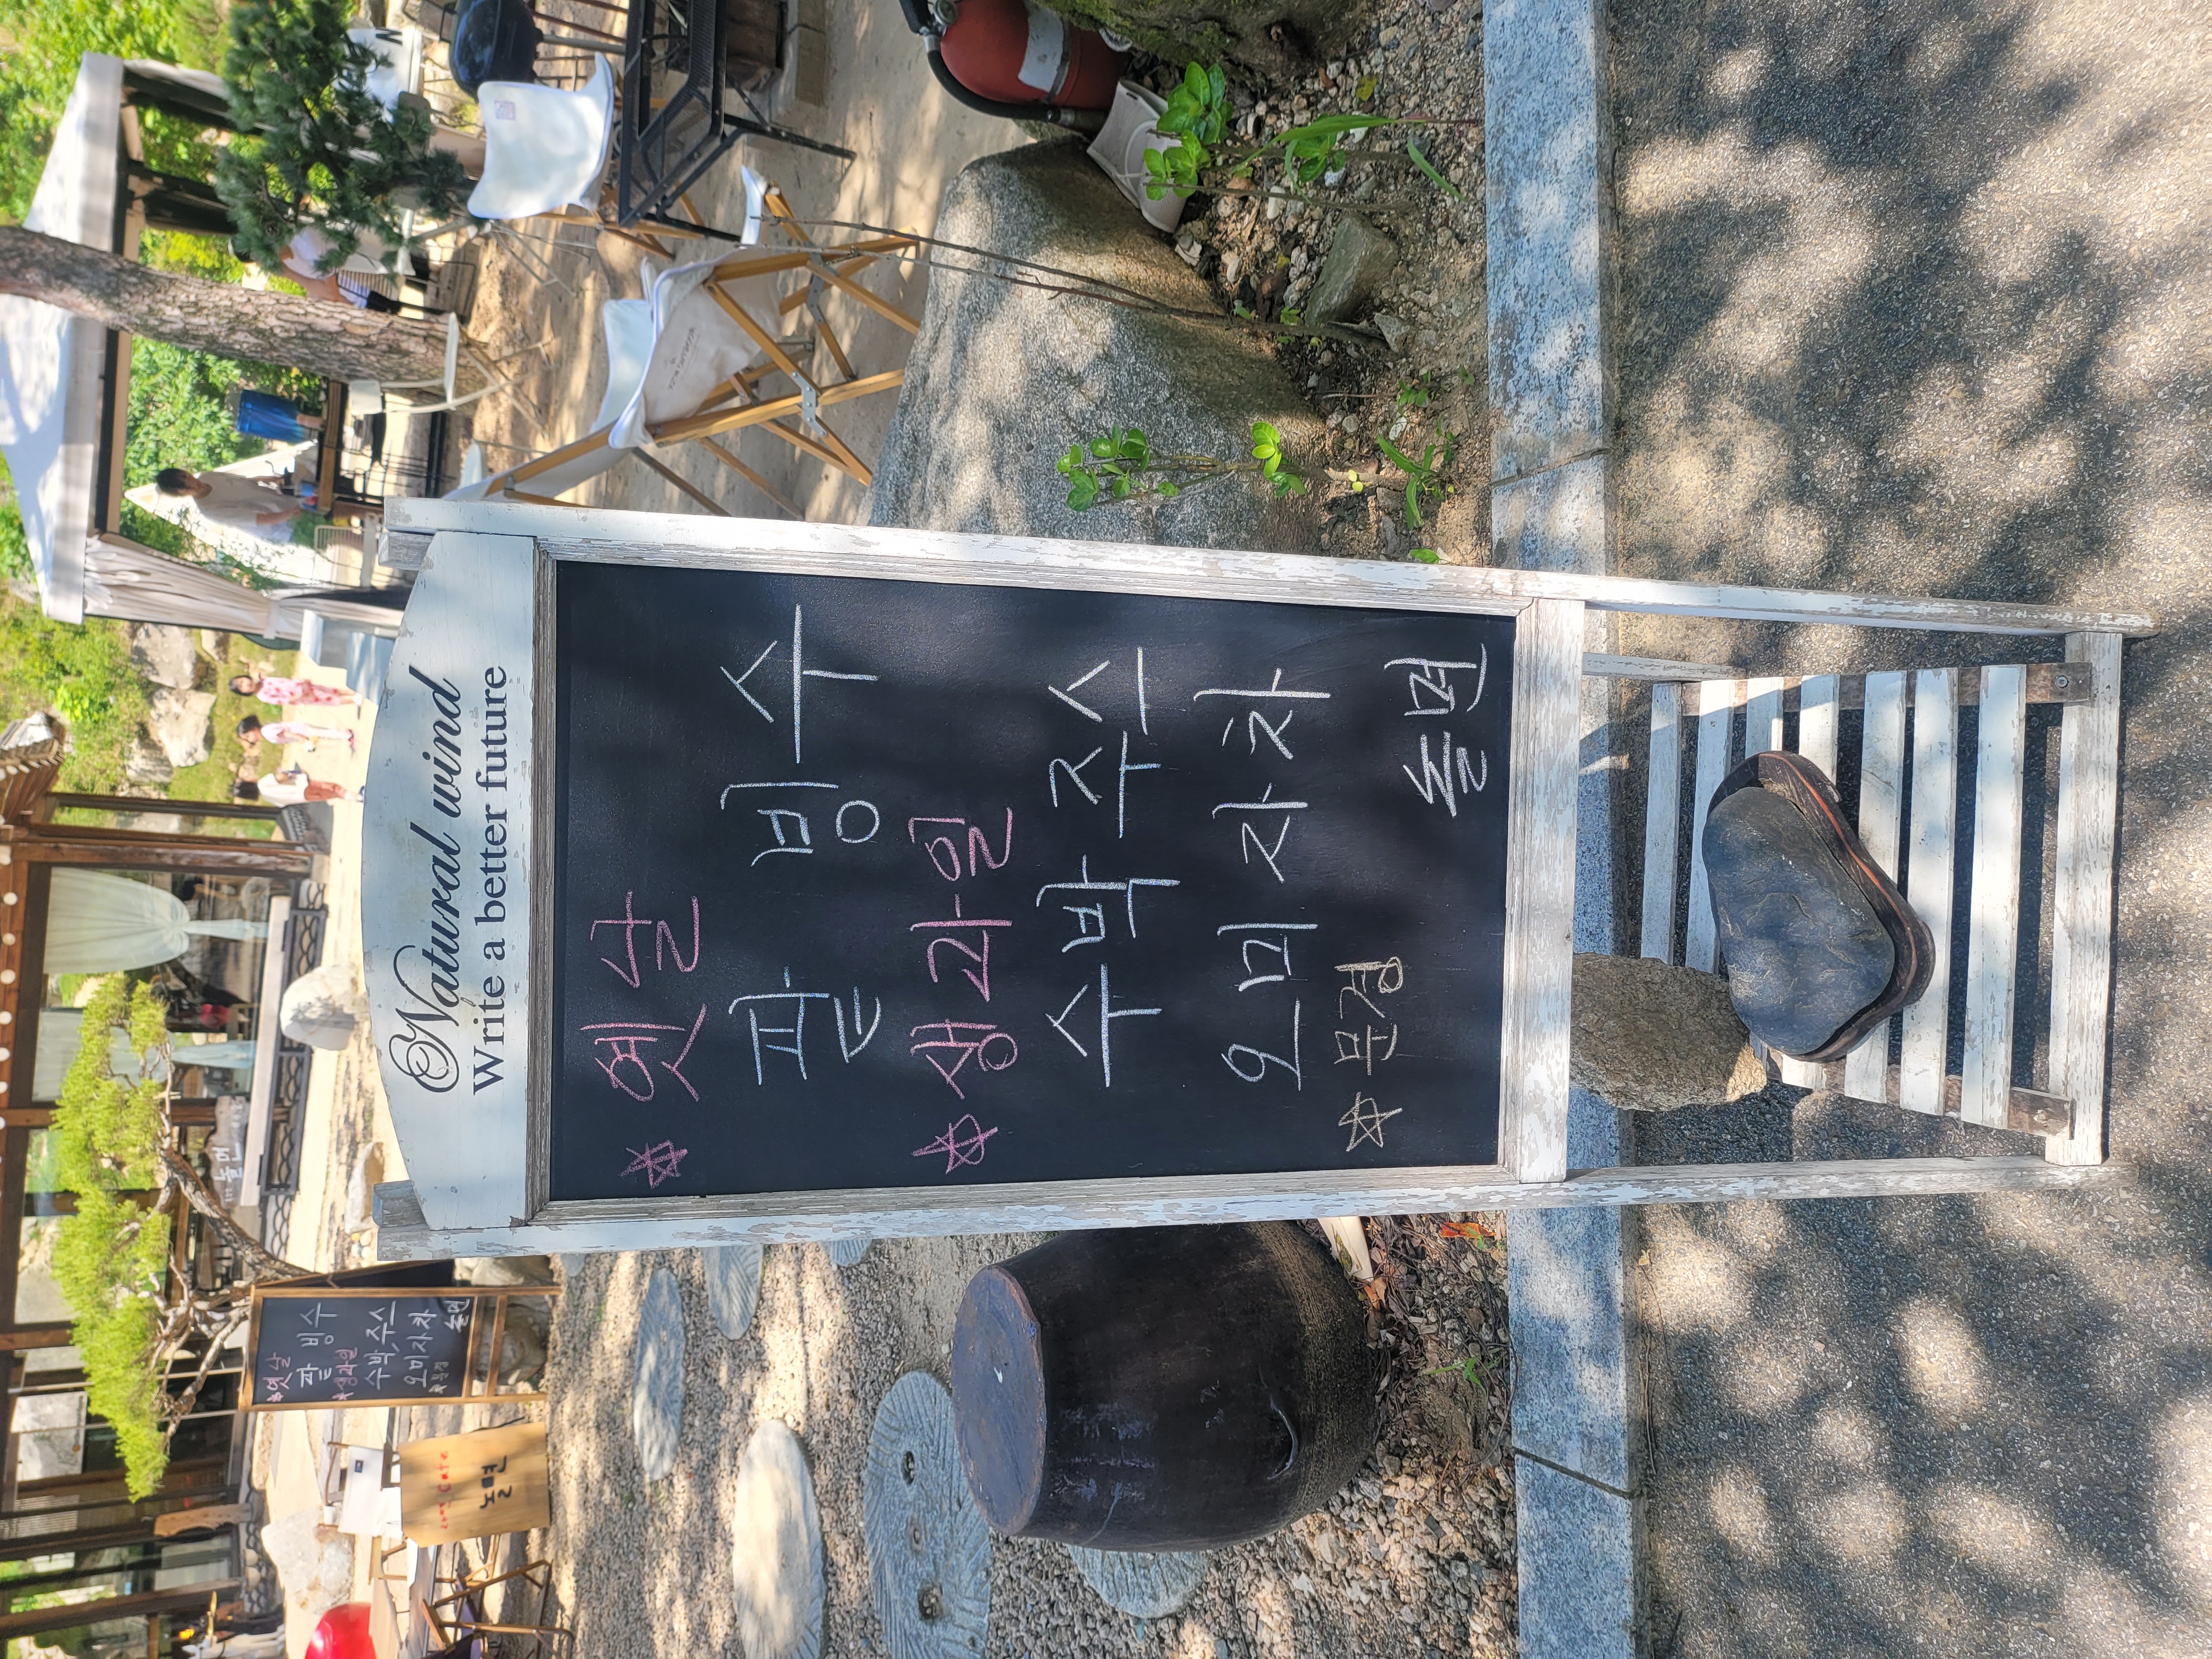 Natural wind
Write a better future
☆ 옛날
팥 빙 수
☆ 생과일
수박 주스
오미자차
☆ 문경
뜰번
☆옛날
팥 빙 수
☆생과일
수박, 주스
오미자차
☆문경